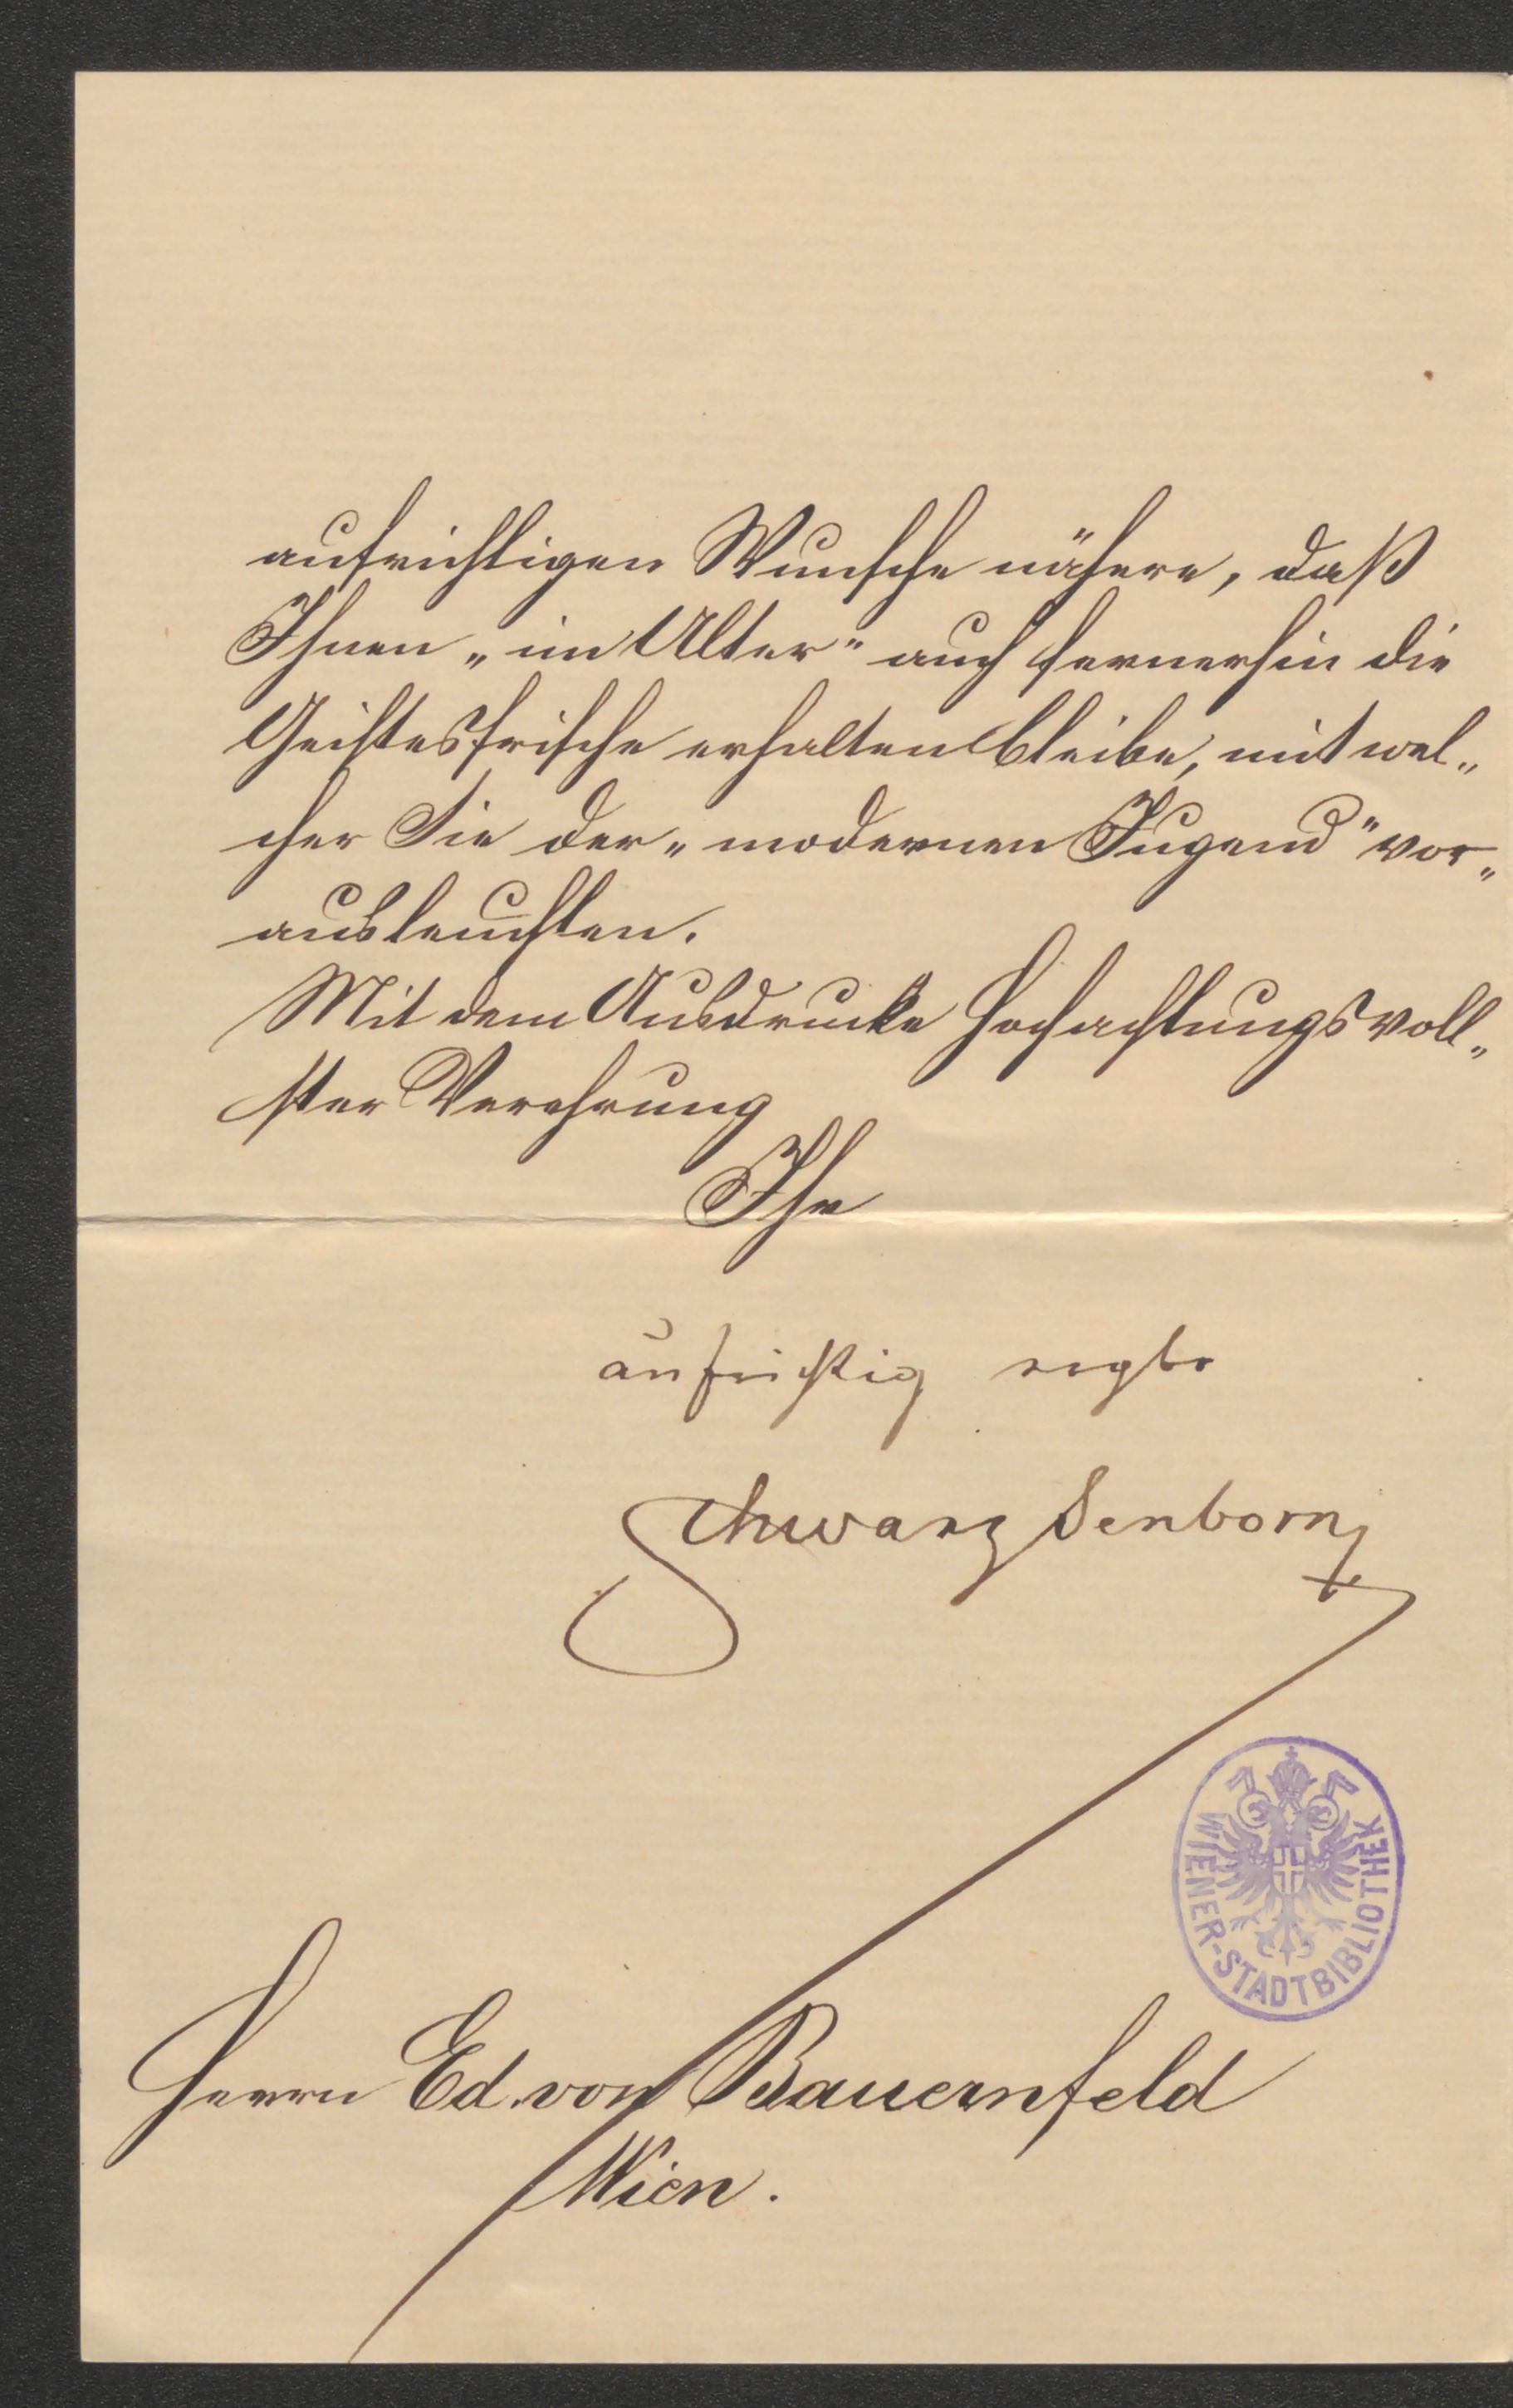 aufrichtigen Wunsche nähere, daß
Ihnen „im Alter" auch fernerhin die
Geistesfrische erhalten bleibe, mit wel„
cher Sie der „modernen Jugend" vor„
ausleuchten.
Mit dem Ausdrucke hochachtungsvoll„
ster Verehrung
Ihr
aufrichtig ergbr
Schwarz Senborn
WIENER-STADTBIBLIOTHEK
Herrn Ed. von Bauernfeld
Wien.